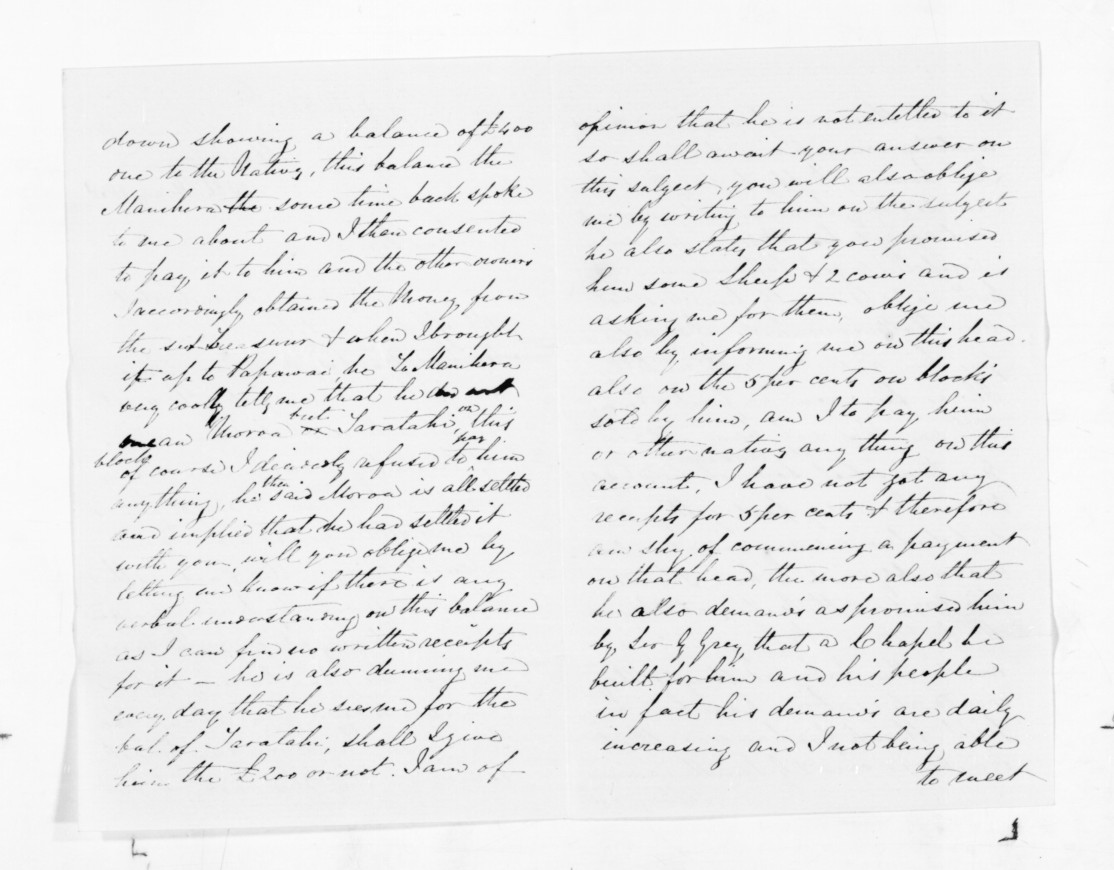 down showing a balance of £400
one to the Nativs, this balance the
Manihera the some time back spoke
to me about and I then consented
to pay it to him and the other owners
I accordingly obtained the Money from
the sub treasurer & when I brought
it up to Papawai he Te Manihera
very cooly tells me that he
an Moroa but Taratahi, on this
block
of course I decidedly refused to pay him
anything, he then said Moroa is all settled
and implied that he had settled it
with you, will you oblige me by
letting me know if there is any
verbal understanding on this balance
as I can find no written receipts
for it — he is also dunning me
every day that he sees me for the
bal. of Taratahi, shall I give
him the £200 or not. I am of
opinion that he is not entitled to it
so shall await your answer on
this subject, you will also oblige
me by writing to him on the subject
he also states that you promised
him some Sheep & 2 cows and is
asking me for them, oblige me
also by informing me on this head.
also on the 5 per cents on blocks
sold by him, am I to pay him
or other natives any thing on this
account, I have not got any
receipts for 5 per cents & therefore
am shy of commencing a payment
on that head, the more also that
he also demands as promised him
by Sir G Grey that a Chapel be
built for him and his people
in fact his demands are daily
increasing and I not being able
to meet